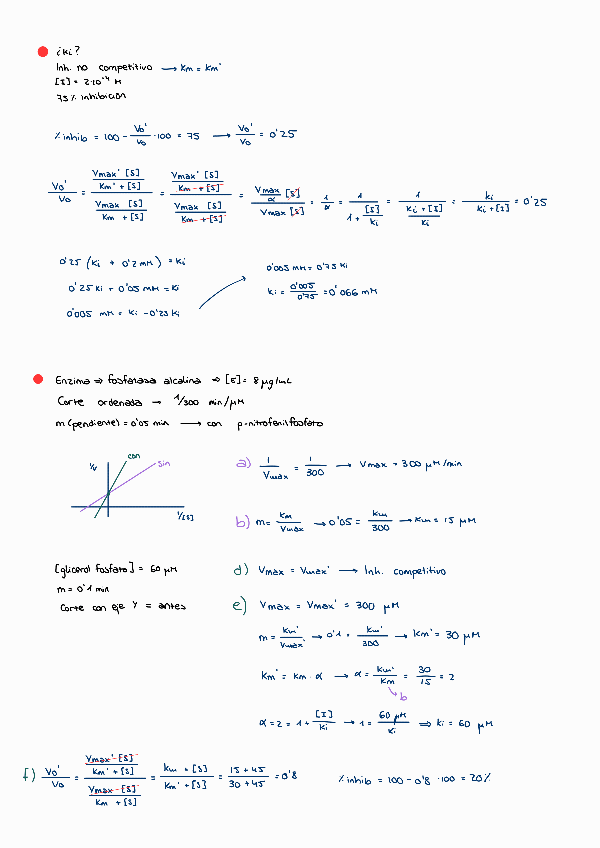 ¿Ki?
Inh. no competitivo → Km = Km'
[I] = 2·10⁻⁴ M
75% inhibición
% inhib = 100 - Vo'/Vo · 100 = 75 → Vo'/Vo = 0'25
Vo'/Vo = (Vmax' [S] / Km' + [S]) / (Vmax [S] / Km + [S]) = (Vmax' [S] / Km + [S]) / (Vmax [S] / Km + [S]) = (Vmax/α [S]) / (Vmax [S]) = 1/α = 1 / (1 + [I]/Ki) = 1 / ((Ki + [I]) / Ki) = Ki / (Ki + [I]) = 0'25
0'25 (Ki + 0'2 mM) = Ki
0'25 Ki + 0'05 mM = Ki
0'005 mM = Ki - 0'25 Ki
0'005 mM = 0'75 Ki
Ki = 0'005/0'75 = 0'066 mM
Enzima ⇒ fosfatasa alcalina ⇒ [E] = 8 μg/mL
Corte ordenada → 1/300 min/μM
m (pendiente) = 0'05 min → con p-nitrofenilfosfato
1/V
con
sin
1/[S]
a) 1/Vmax = 1/300 → Vmax = 300 μM/min
b) m = Km/Vmax → 0'05 = Km/300 → Km = 15 μM
[glicerol fosfato] = 60 μM
m = 0'1 min
Corte con eje Y = antes
d) Vmax = Vmax' → Inh. competitivo
e) Vmax = Vmax' = 300 μM
m = Km'/Vmax' → 0'1 = Km'/300 → Km' = 30 μM
Km' = Km · α → α = Km'/Km = 30/15 = 2
b
α = 2 = 1 + [I]/Ki → 1 = 60 μM/Ki ⇒ Ki = 60 μM
f) Vo'/Vo = (Vmax' [S] / Km' + [S]) / (Vmax [S] / Km + [S]) = (Km + [S]) / (Km' + [S]) = (15 + 45) / (30 + 45) = 0'8
% inhib = 100 - 0'8 · 100 = 20%